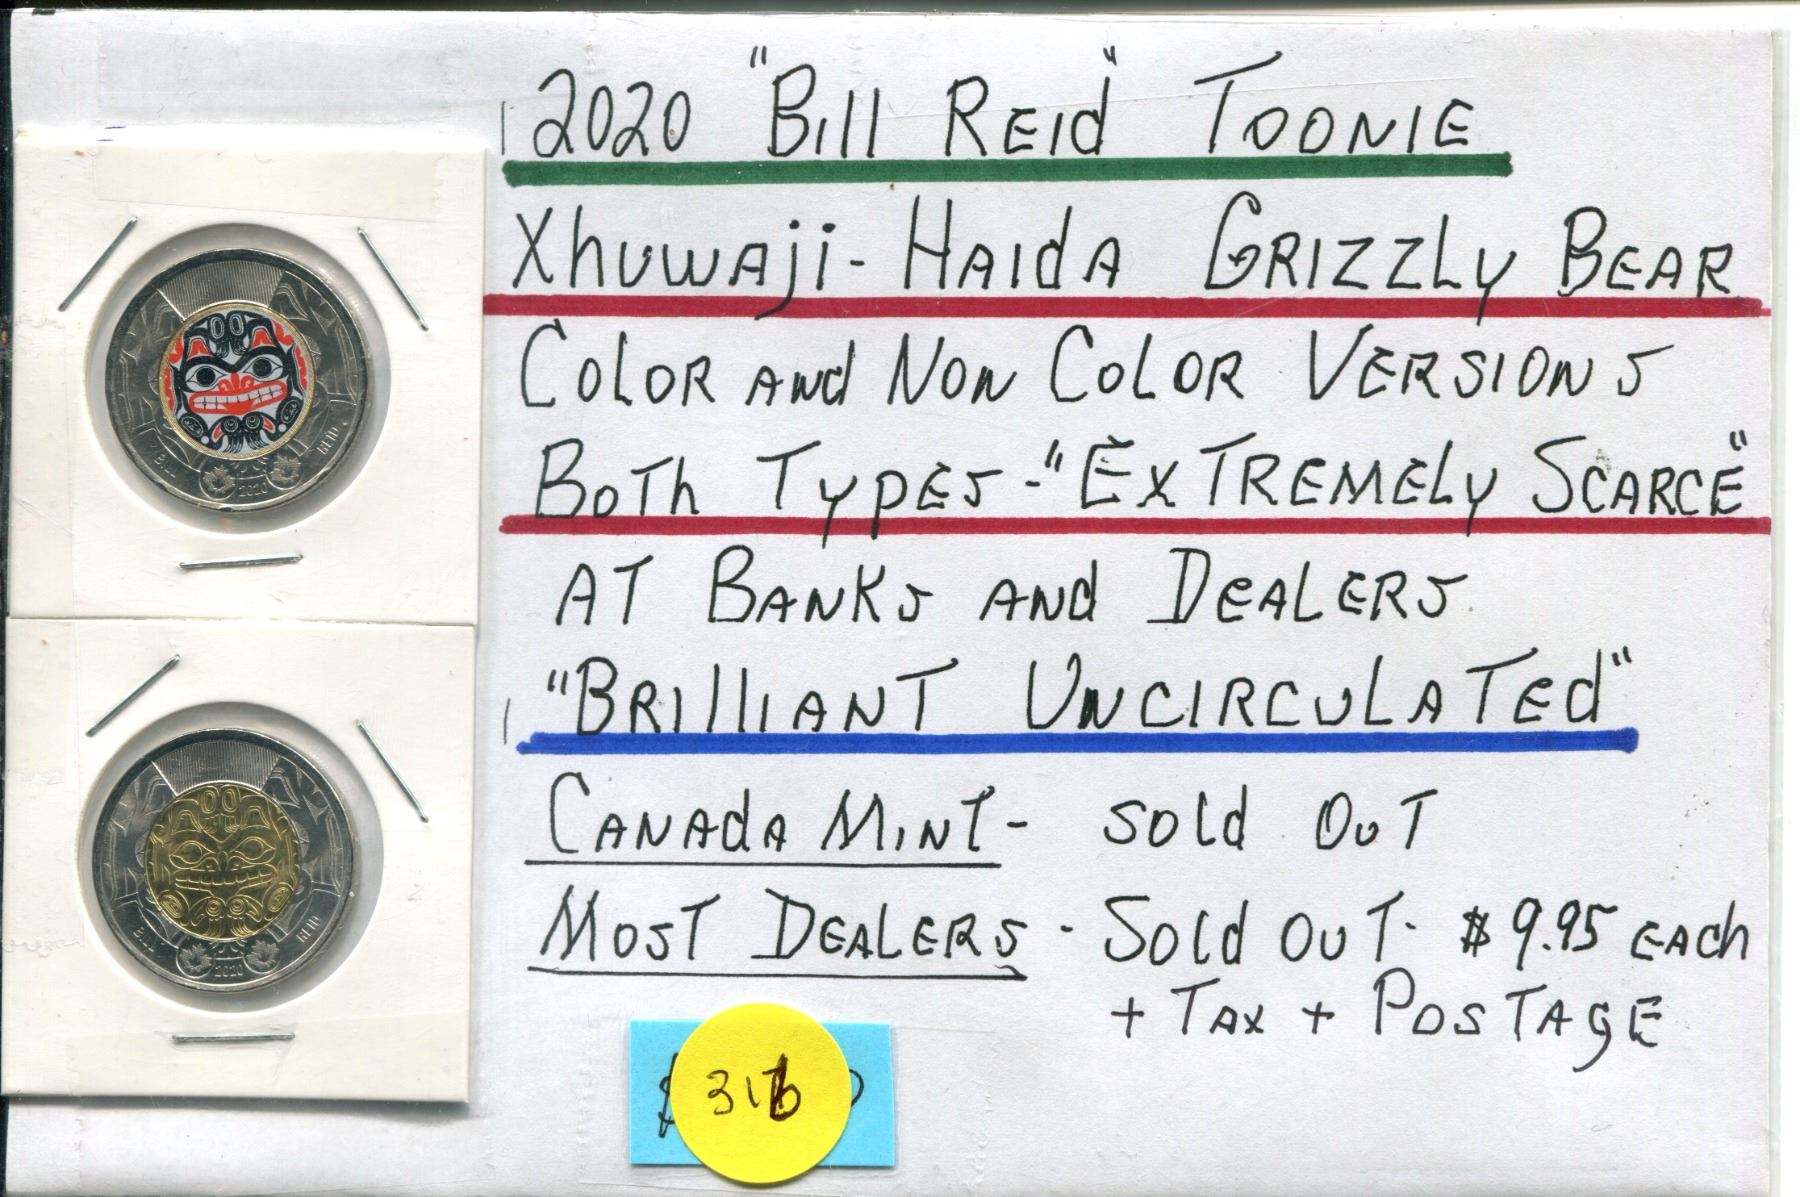 2020 "Bill Reid" Toonie
Xhuwaji - Haida Grizzly Bear
Color and Non Color Versions
Both Types - "Extremely Scarce"
at Banks and Dealers.
"Brilliant Uncirculated"
Canada Mint - Sold Out
Most Dealers - Sold Out - $9.95 each
+ Tax + Postage
BILL REID
2020
BILL REID
2020